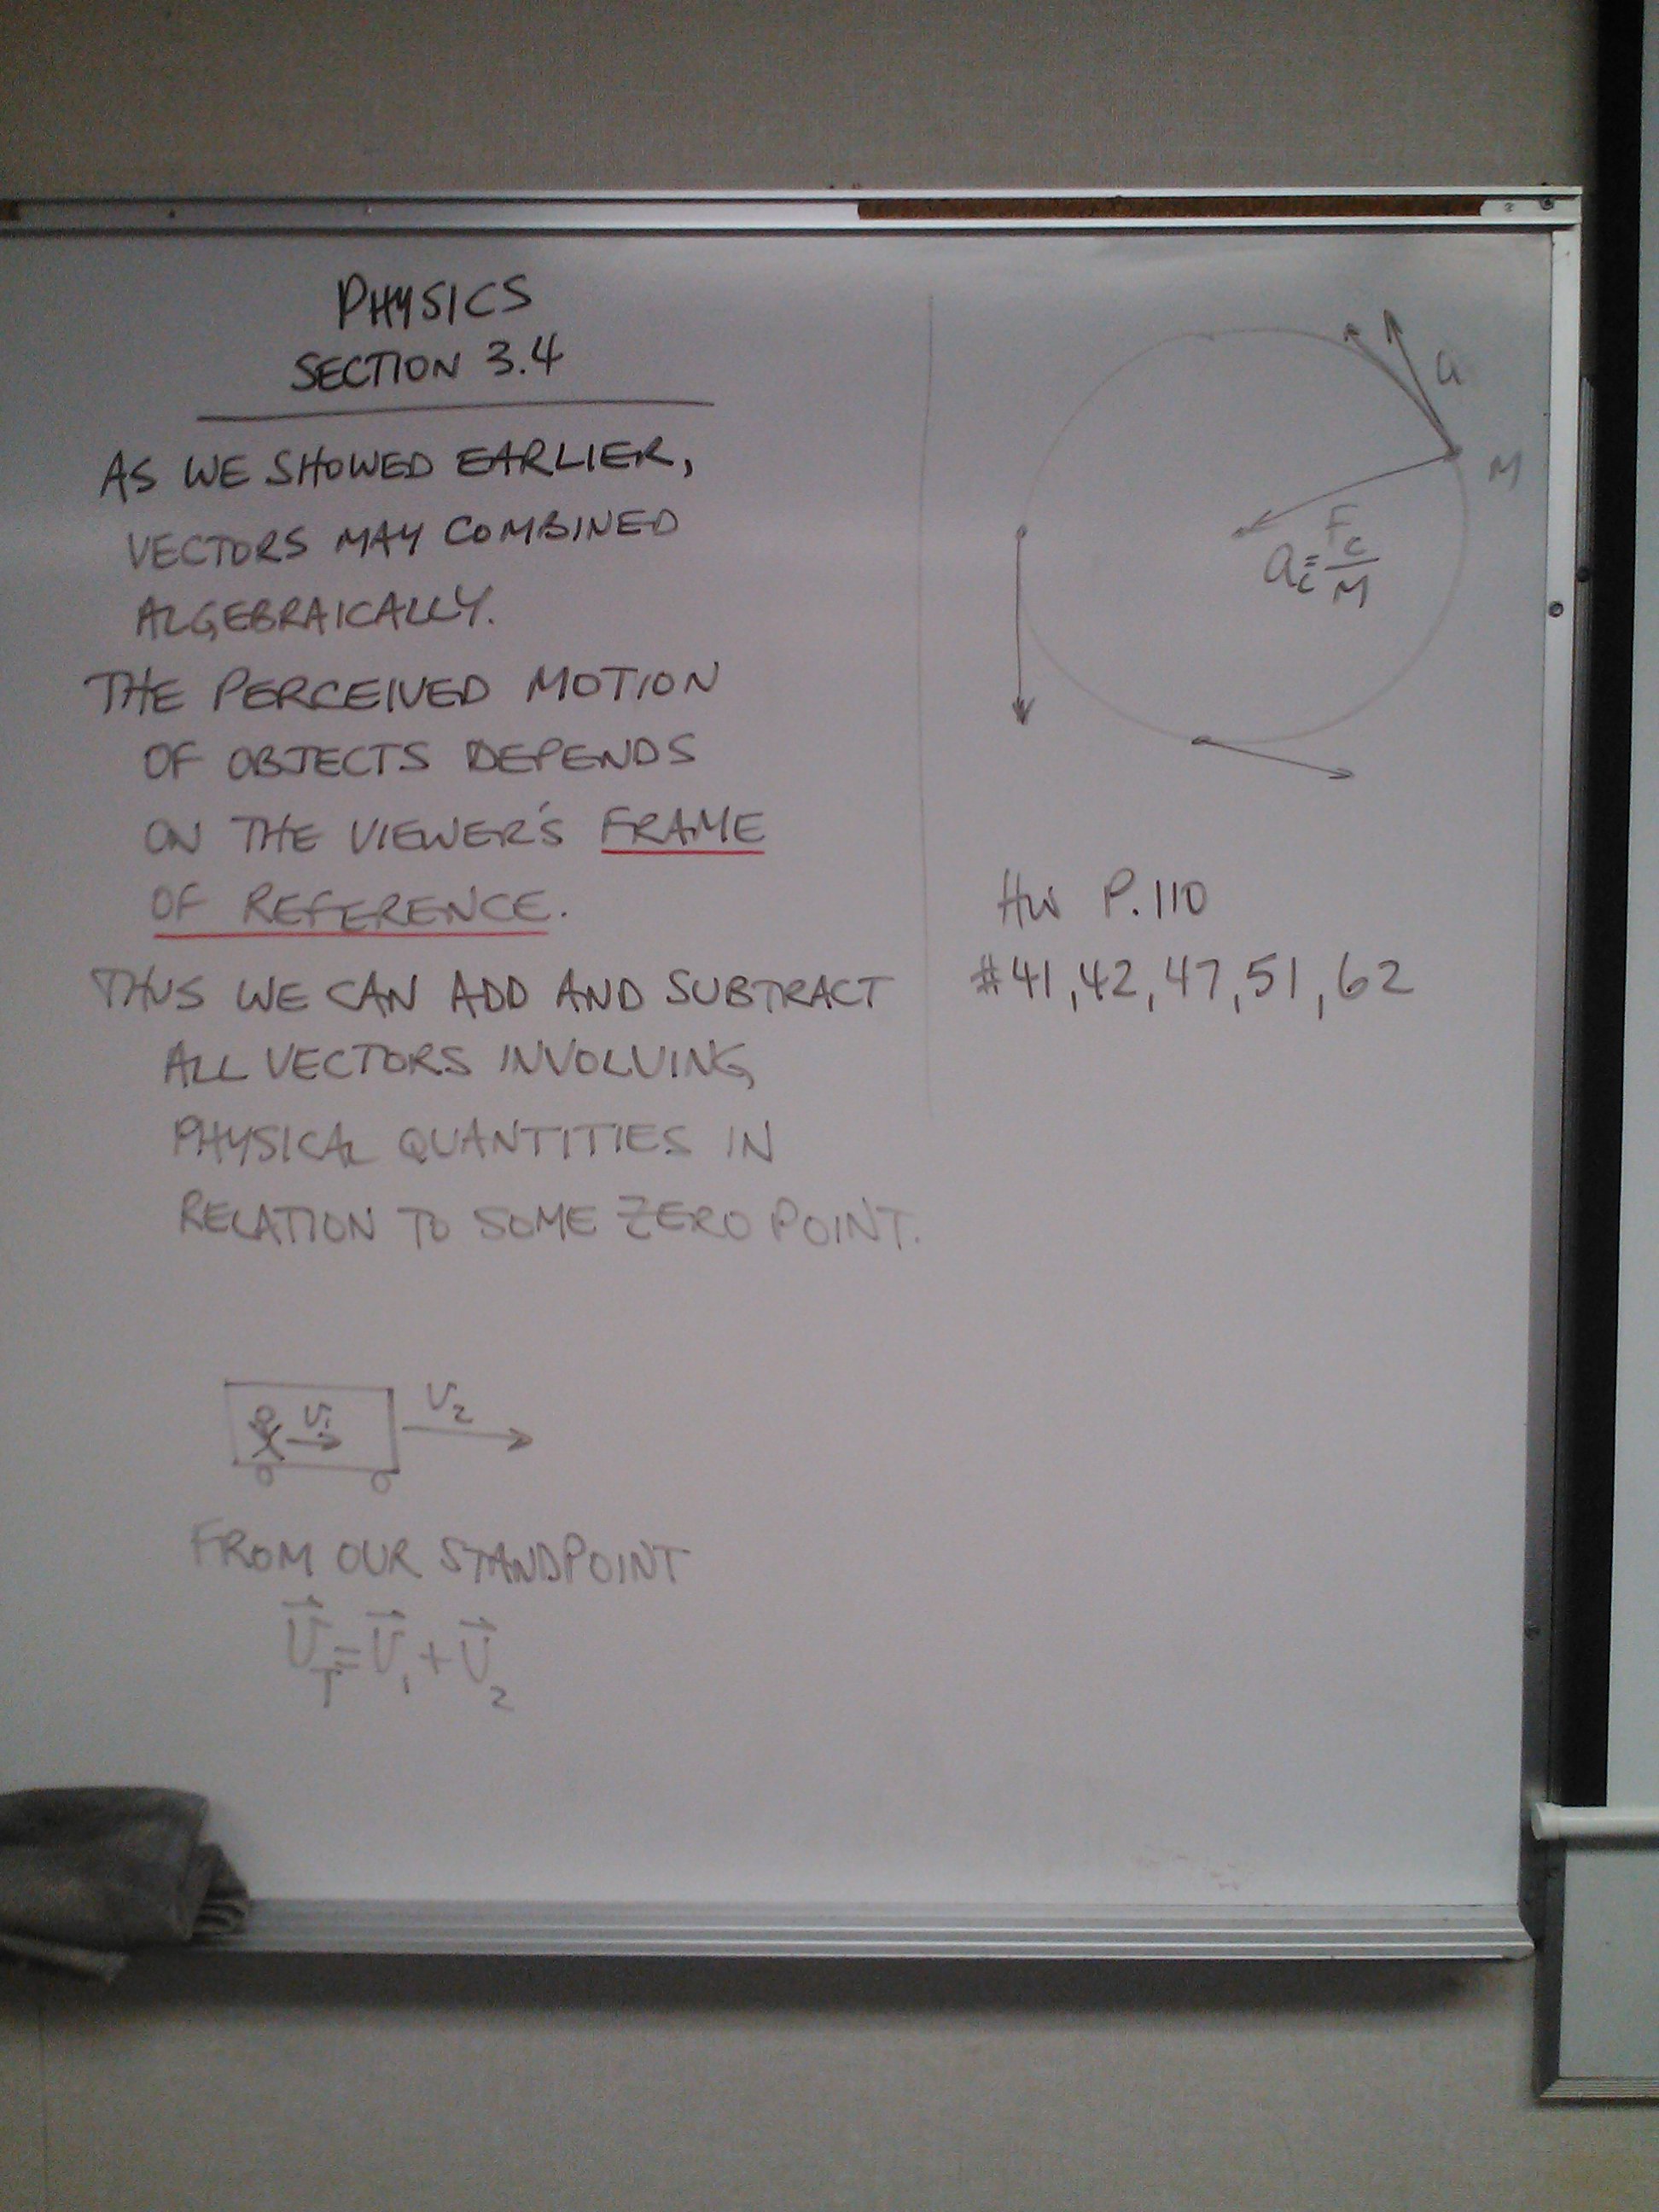 PHYSICS
SECTION 3.4
AS WE SHOWED EARLIER,
VECTORS MAY COMBINED
ALGEBRAICALLY.
THE PERCEIVED MOTION
OF OBJECTS DEPENDS
ON THE VIEWER'S FRAME
OF REFERENCE.
THUS WE CAN ADD AND SUBTRACT
ALL VECTORS INVOLVING
PHYSICAL QUANTITIES IN
RELATION TO SOME ZERO POINT.
V₁ V₂
FROM OUR STANDPOINT
V⃗_T = V⃗₁ + V⃗₂
a
M
a_c = F_c / M
HW P.110
#41, 42, 47, 51, 62